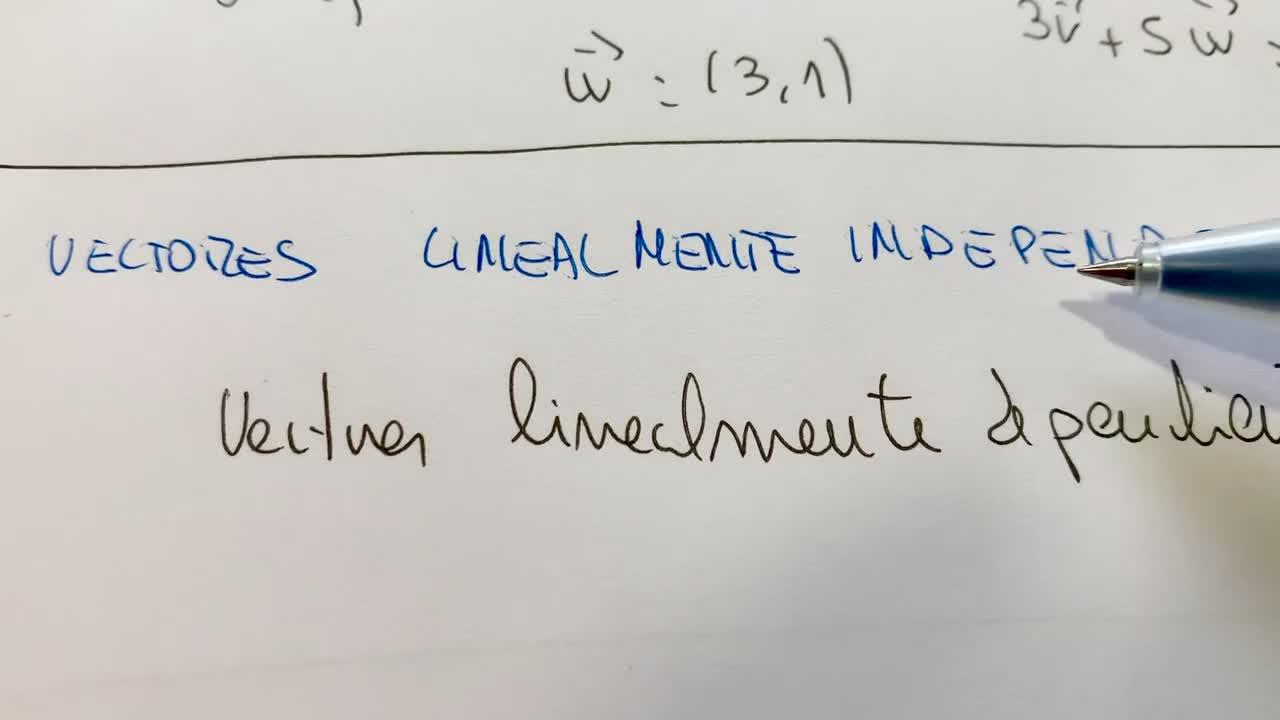 3v⃗ + 5w⃗
w⃗ = (3,1)
VECTORES LINEALMENTE INDEPEND
Vectores linealmente dependien